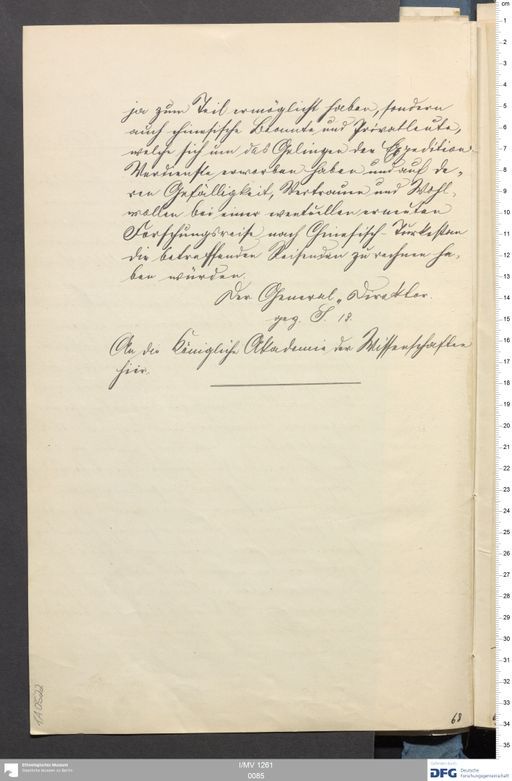 ja zum Teil ermöglicht haben, sondern
auch chinesische Beamte und Privatleute,
welche sich um das Gelingen der Expedition
Verdienste erworben haben und auf de-
ren Gefälligkeit, Vertrauen und Wohl-
wollen bei einer eventuellen erneuten
Forschungsreise nach Chinesisch-Turkestan
die betreffenden Reisenden zu rechnen ha-
ben würden.
Der General-Direktor.
gez. S. 18.
An die Königliche Akademie der Wissenschaften
hier.
68
Ethnologisches Museum
Staatliche Museen zu Berlin
I/MV 1261
0085
Gefördert durch
DFG Deutsche
Forschungsgemeinschaft
cm
1
2
3
4
5
6
7
8
9
10
11
12
13
14
15
16
17
18
19
20
21
22
23
24
25
26
27
28
29
30
31
32
33
34
35